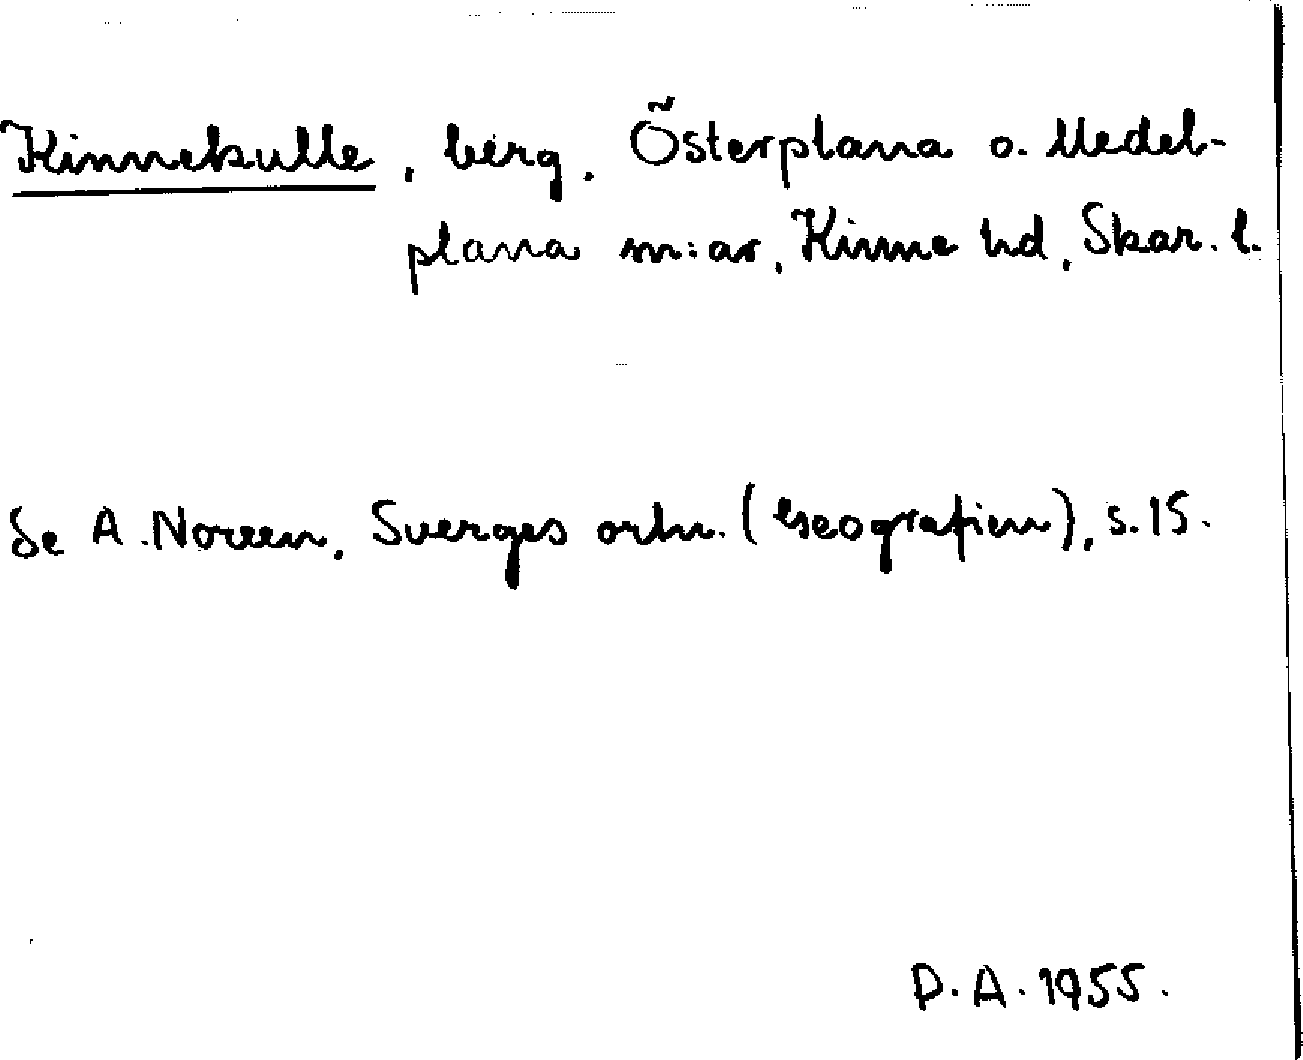 Kinnekulle, berg, Österplana o. Medel-
plana sn:ar, Kinne hd, Skar. l.
Se A. Noreen, Sverges ortn. (Geografien), s. 15.
D. A. 1955.